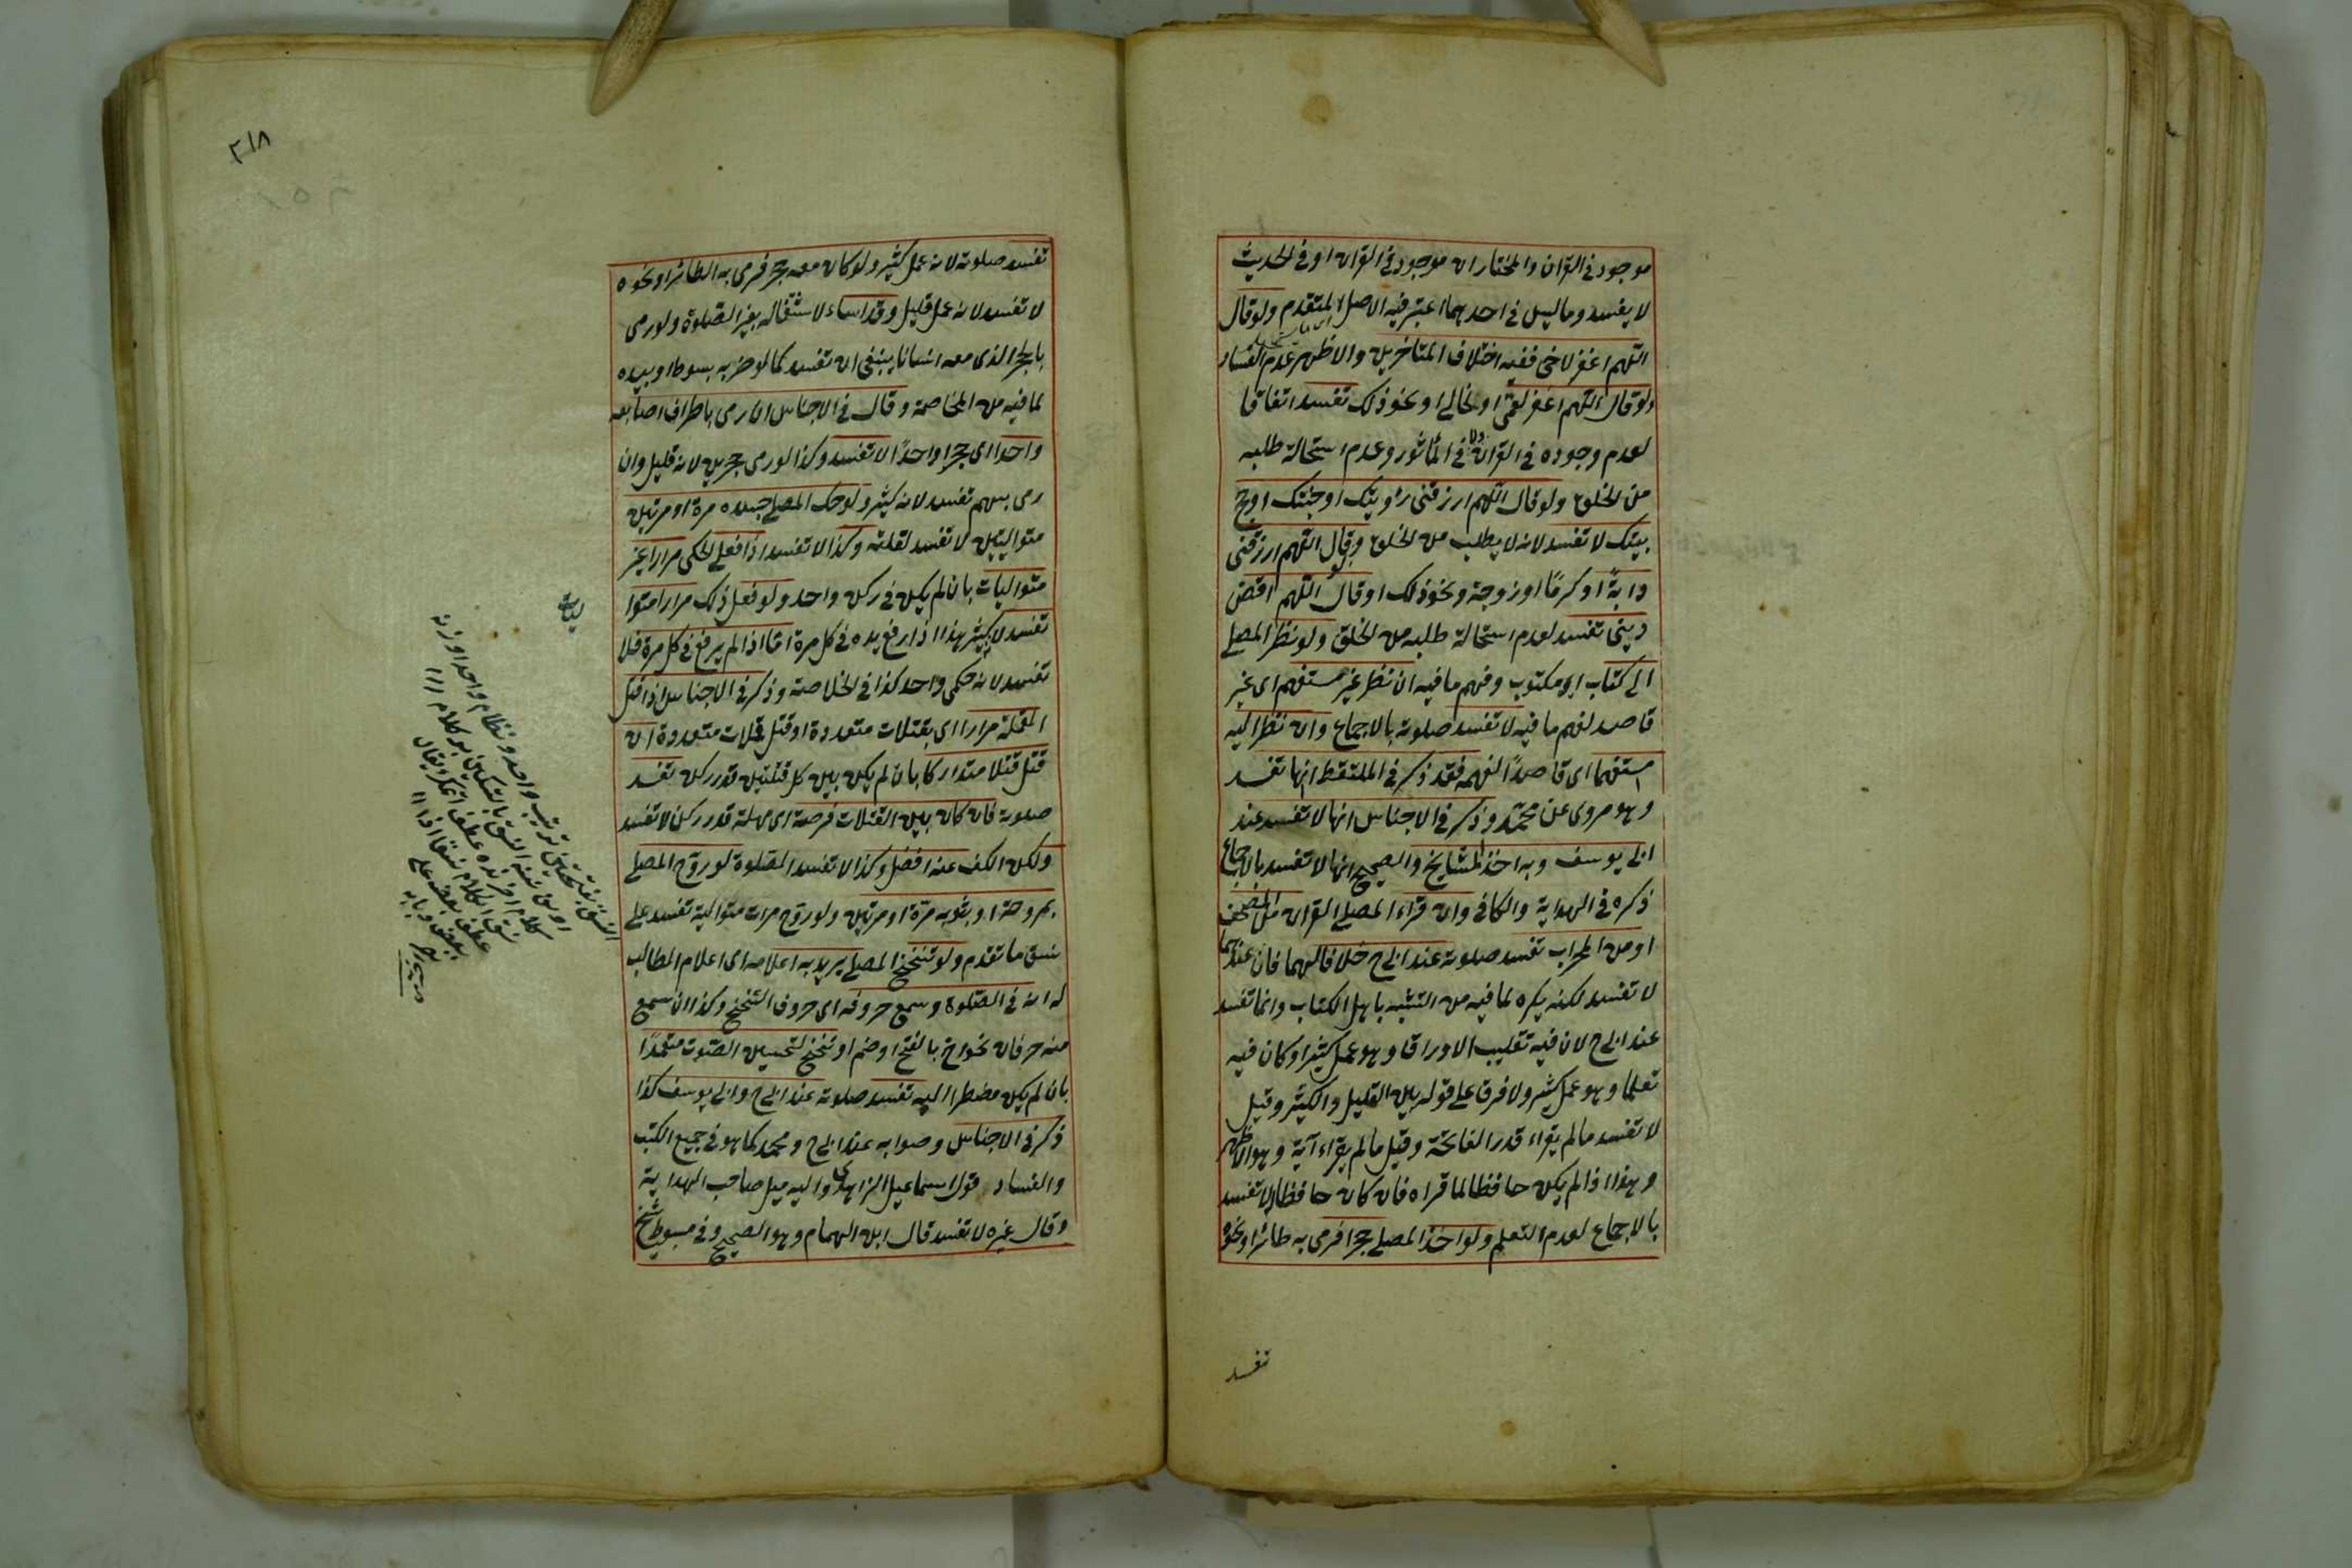 موجود في القرآن والمختار ان موجود في القرآن او في الحديث
لا يفسد وما ليس في احدهما اعتبر فيه الاصل المتقدم ولو قال
اللهم اغفر لاخي ففيه اختلاف المتاخرين والاظهر عدم الفساد
ولو قال اللهم اغفر لعمي او لخالي او نحو ذلك تفسد اتفاقا
لعدم وجوده في القرآن ولا في المأثور وعدم استحالة طلبه
من الخلق ولو قال اللهم ارزقني رؤيتك او جنتك او حج
بيتك لا تفسد لانه لا يطلب من الخلق وقال اللهم ارزقني
دابة او كرما او زوجة ونحو ذلك او قال اللهم اقض
ديني تفسد لعدم استحالة طلبه من الخلق ولو نظر المصلي
الى كتاب او مكتوب وفهم ما فيه ان نظر غير مستفهم اى غير
قاصد لفهم ما فيه لا تفسد صلوته بالاجماع وان نظر اليه
مستفهما اى قاصدًا لفهمه فقد ذكر في الملتقط انها تفسد
وهو مروى عن محمد وذكر في الاجناس انها لا تفسد عند
ابى يوسف وبه اخذ المشايخ والصحيح انها لا تفسد بالاجماع
ذكره في الهداية والكافي وان قراء المصلي القرآن من المصحف
او من المحراب تفسد صلوته عند ابى ح خلافا لهما فان عندهما
لا تفسد لكنه يكره لما فيه من التشبه باهل الكتاب وانما تفسد
عند ابى ح لان فيه تقليب الاوراق وهو عمل كثير او كان فيه
تعلما وهو عمل كثير ولا فرق على قوله بين القليل والكثير وقيل
لا تفسد ما لم يقراء قدر الفاتحة وقيل ما لم يقراء آية وهو الاظهر
وهذا اذا لم يكن حافظا لما قراه فان كان حافظا لا تفسد
بالاجماع لعدم التعلم ولو اخذ المصلي حجرا فرمى به طائرا ونحوه
تفسد
٢١٨
تفسد صلوته لانه عمل كثير ولو كان معه حجر فرمى به الطائر او نحوه
لا تفسد لانه عمل قليل وقد اساء لاشتغاله بغير الصلوة ولو رمى
بالحجر الذى معه انسانا ينبغى ان تفسد كما لو ضربه بسوط او بيده
لما فيه من المخاصمة وقال في الاجناس ان رمى باطراف اصابعه
واحدا اى حجرا واحدًا لا تفسد وكذا لو رمى حجرين لانه قليل وان
رمى بسهم تفسد لانه كثير ولو حك المصلي جسده مرة او مرتين
متواليتين لا تفسد لقلته وكذا لا تفسد اذا فعل الحك مرارا غير
متواليات بان لم يكن في ركن واحد ولو فعل ذلك مرارا متوا
ليات
تفسد لانه كثير هذا اذا رفع يده في كل مرة اما اذا لم يرفع في كل مرة فلا
تفسد لانه حك واحد كذا في الخلاصة وذكر في الاجناس اذا قتل
القملة مرارا اى بقتلات متعددة او قتل قملات متعددة ان
قتل قتلا متداركا بان لم يكن بين كل قتلتين قدر ركن تفسد
صلوته فان كان بين القتلات فرصة اى مهلة قدر ركن لا تفسد
ولكن الكف عنه افضل وكذا لا تفسد الصلوة لو روح المصلي
بمروحة او بثوبه مرة او مرتين ولو روح مرات متوالية تفسد على
نسق ما تقدم ولو تنحنح المصلي يريد به اعلامه اى اعلام المطالب
له انه في الصلوة وسمع حروفه اى حروف التنحنح وكذا ان سمع
منه حرفان نحو اح بالفتح او ضم او تنحنح لتحسين الصوت متعمدًا
بان لم يكن مضطرا اليه تفسد صلوته عند ابى ح وابى يوسف كذا
ذكر في الاجناس وصوابه عند ابى ح ومحمد كما هو في جميع الكتب
والفساد قول اسماعيل الزاهدى واليه ميل صاحب الهداية
وقال غيره لا تفسد قال ابن الهمام وهو الصحيح وفي مبسوط شيخ